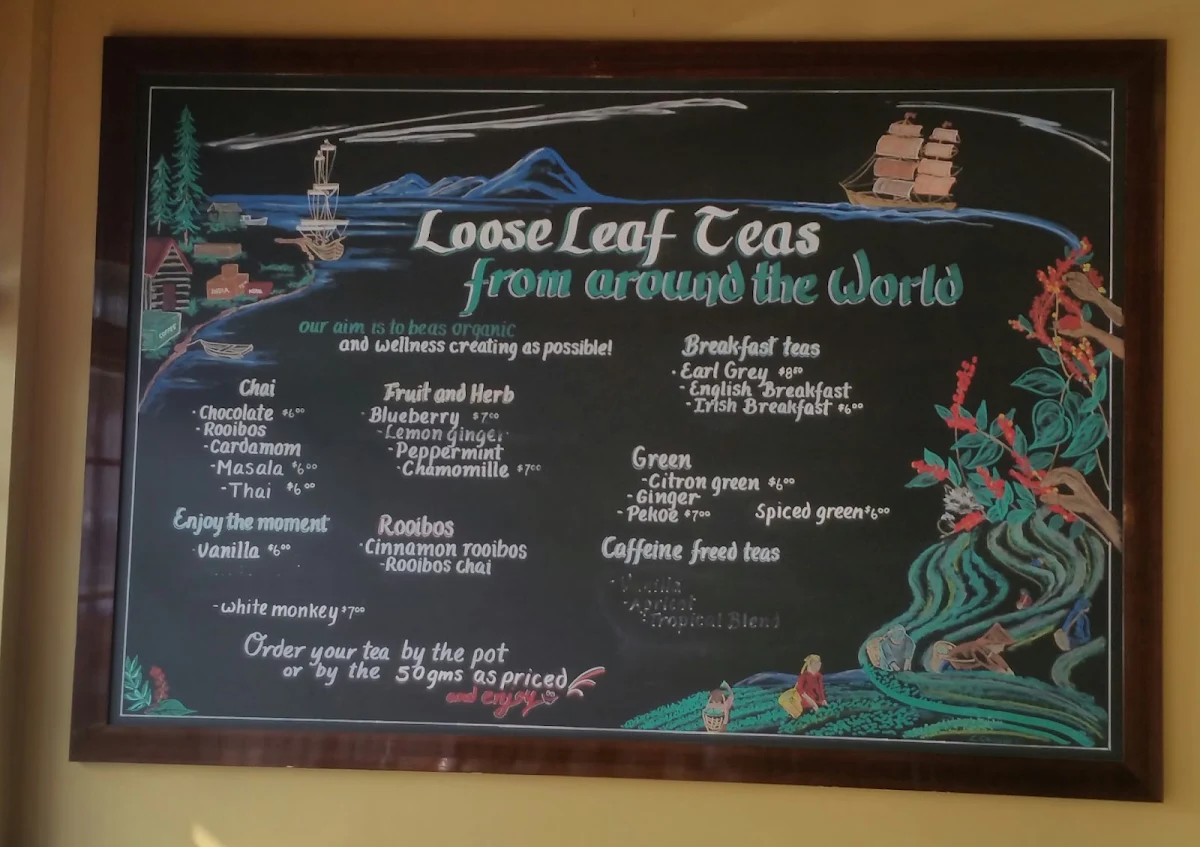 Loose Leaf Teas
from around the World
our aim is to be as organic
and wellness creating as possible!
Chai
· Chocolate $6⁰⁰
· Rooibos
- Cardamom
- Masala $6⁰⁰
- Thai $6⁰⁰
Enjoy the moment
- Vanilla $6⁰⁰
- white monkey $7⁰⁰
Fruit and Herb
- Blueberry $7⁰⁰
- Lemon ginger
- Peppermint
- Chamomille $7⁰⁰
Rooibos
· Cinnamon rooibos
- Rooibos chai
Breakfast teas
· Earl Grey $8⁵⁰
- English Breakfast
- Irish Breakfast $6⁰⁰
Green
- Citron green $6⁰⁰
- Ginger
- Pekoe $7⁰⁰ Spiced green $6⁰⁰
Caffeine freed teas
- Vanilla
- Apricot
- Tropical Blend
Order your tea by the pot
or by the 50gms as priced
and enjoy
INDIA
COFFEE